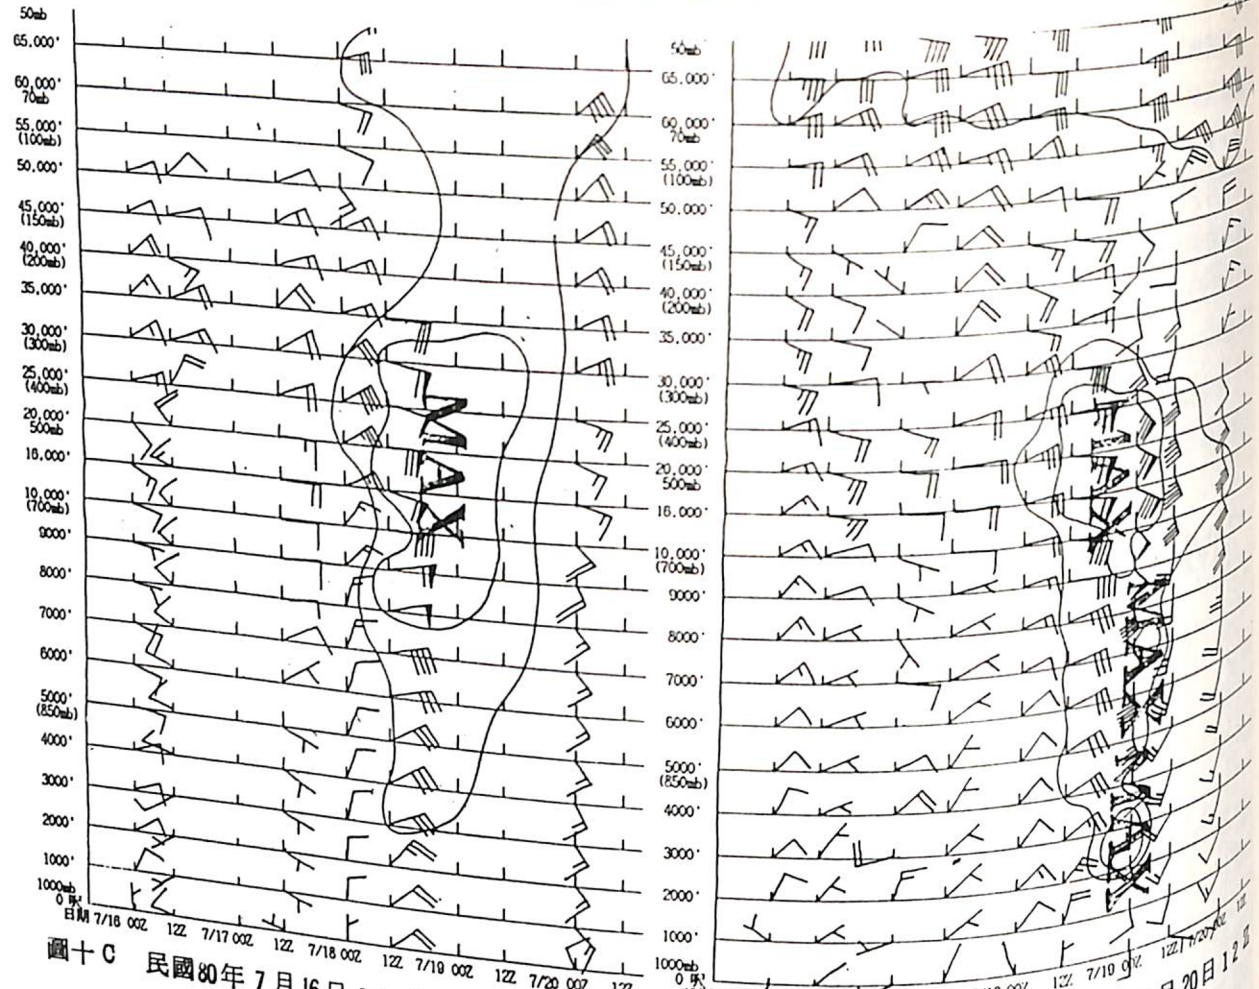 50mb
65,000'
60,000'
70mb
55,000'
(100mb)
50,000'
45,000'
(150mb)
40,000'
(200mb)
35,000'
30,000'
(300mb)
25,000'
(400mb)
20,000'
500mb
16,000'
10,000'
(700mb)
9000'
8000'
7000'
6000'
5000'
(850mb)
4000'
3000'
2000'
1000'
1000mb
0 呎
日期 7/16 00Z 12Z 7/17 00Z 12Z 7/18 00Z 12Z 7/19 00Z 12Z 7/20 00Z 12Z
圖十C 民國80年 7月16日
50mb
65,000'
60,000'
70mb
55,000'
(100mb)
50,000'
45,000'
(150mb)
40,000'
(200mb)
35,000'
30,000'
(300mb)
25,000'
(400mb)
20,000'
500mb
16,000'
10,000'
(700mb)
9000'
8000'
7000'
6000'
5000'
(850mb)
4000'
3000'
2000'
1000'
1000mb
0 呎
00Z 12Z 7/19 00Z 12Z 7/20 00Z 12Z
20日12Z